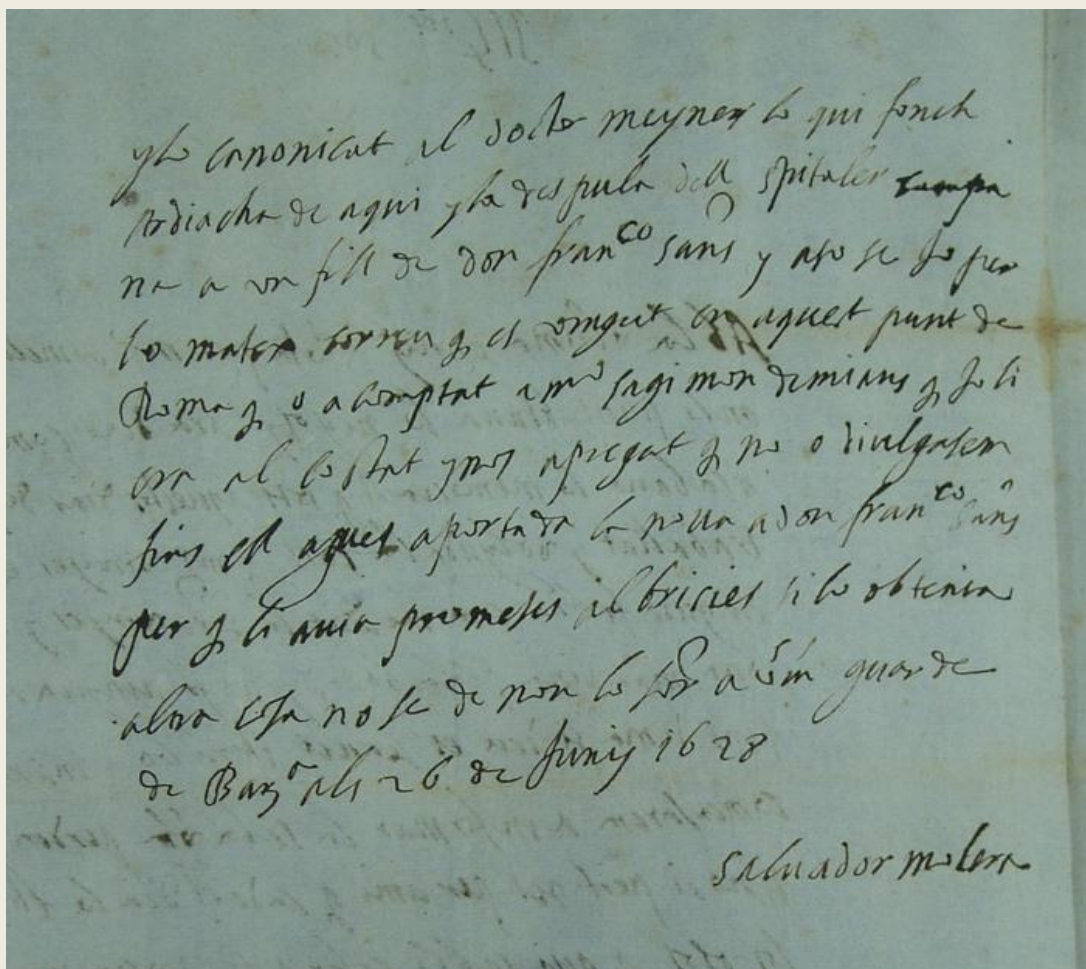 y lo canonicat al doctor meyner lo qui fonch
Ardiacha de aqui y la despula dell spitaler
na a un fill de don fran^co sans y aso se jo per
lo mateix correu q es vingut en aquest punt de
Roma q o a comptat a m^o sagimon demians q jo li
era al costat y nos a pregat q no o divulgasem
fins ell agues aportada la nova a don fran^co sans
per q li avia promeses albricies si lo obtenia
altra cosa no se de nou lo sor a vm guarde
de Bar^a als 26 de Juny 1628
salvador molera